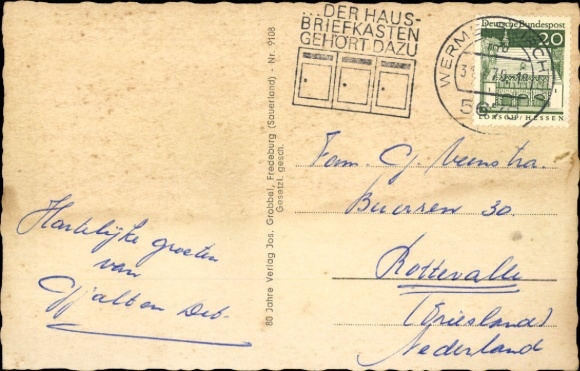 ... DER HAUS-
BRIEFKASTEN
GEHÖRT DAZU
WERM
Deutsche Bundespost
20
LORSCH/HESSEN
80 Jahre Verlag Jos. Grobbel, Fredeburg (Sauerland) - Nr. 9108
Gesetzl. gesch.
Fam. G. Veenstra.
Buorren 30.
Rottevalle
(Friesland)
Nederland
Hartelijke groeten
van
Gjalt en Deb.